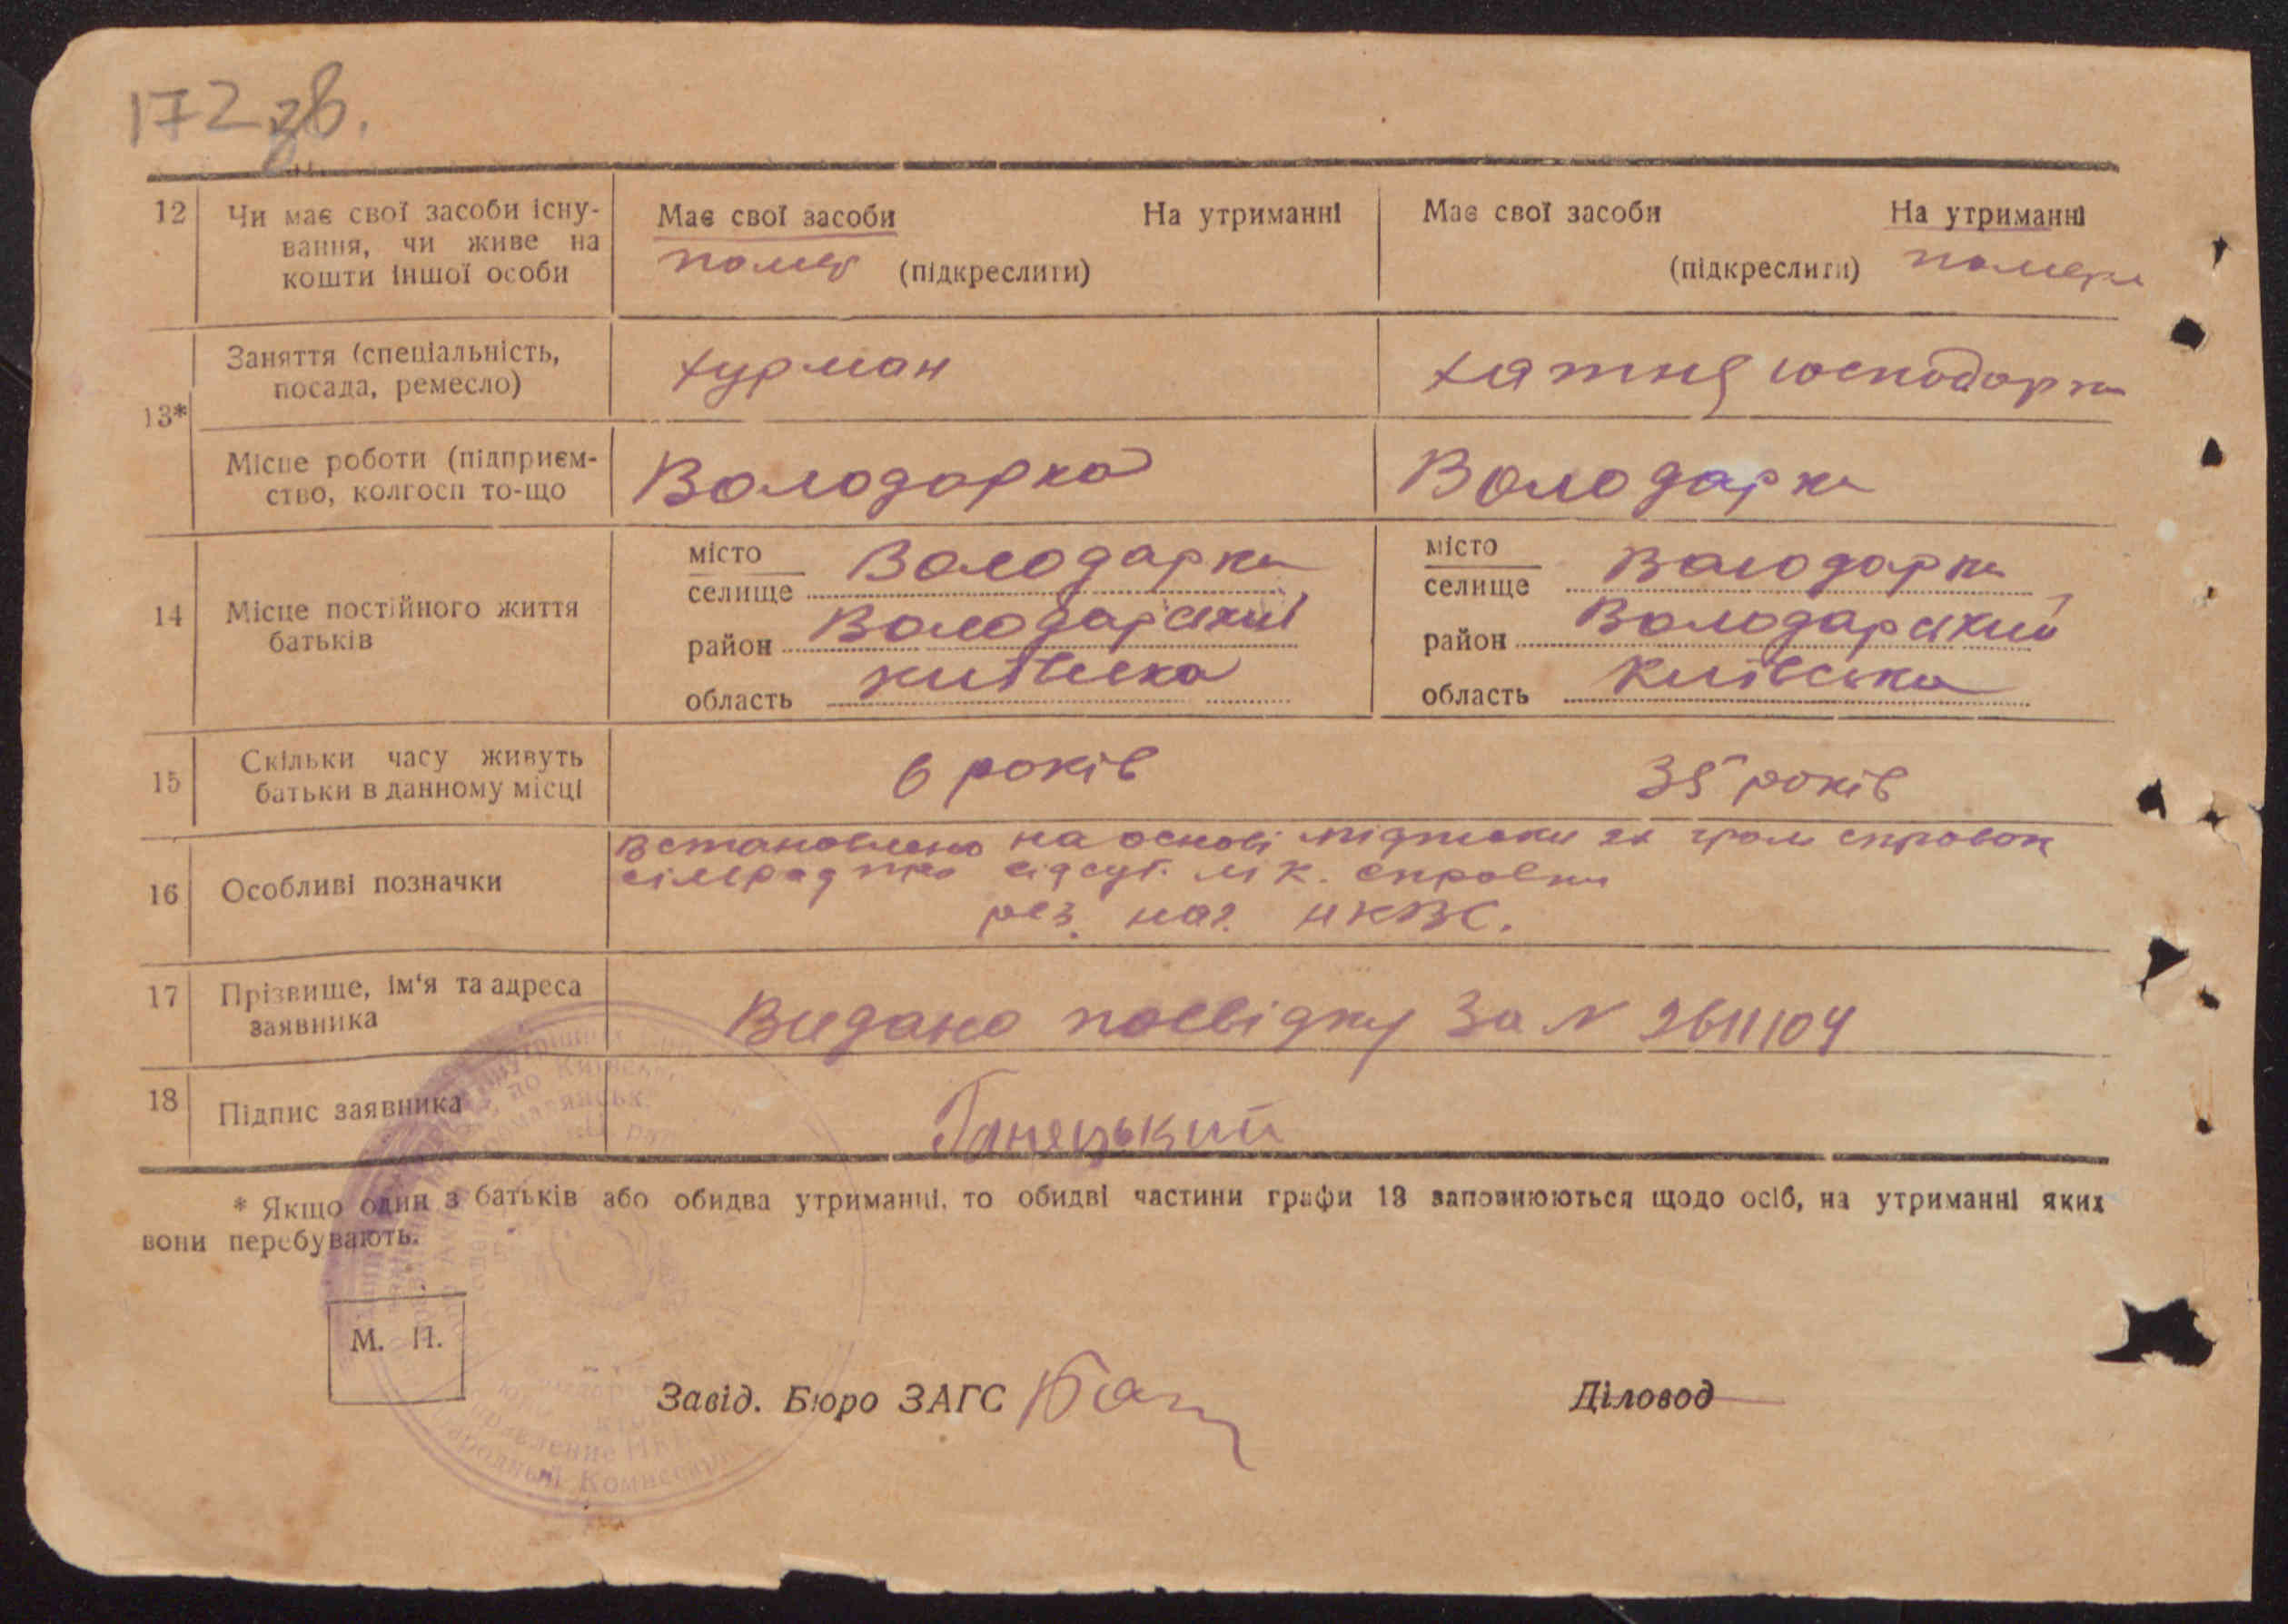 172 зв.
12 Чи має свої засоби існу- Має свої засоби На утриманні Має свої засоби На утриманні
вання, чи живе на помер (підкреслити) (підкреслити) померла
кошти іншої особи
13* Заняття (спеціальність, фурман хатня господарка
посада, ремесло)
Місце роботи (підприєм- Володарка Володарка
ство, колгосп то-що
14 Місце постійного життя батьків
місто Володарка місто Володарка
селище селище
район Володарський район Володарський
область київська область Київська
15 Скільки часу живуть 6 років 35 років
батьки в данному місці
16 Особливі позначки Встановлено на основі підписки 2х гром справок
сільрад про відсут. м к. справки
рез. наг. НКВС.
17 Прізвище, ім'я та адреса Видано посвідку За N 2611104
заявника
18 Підпис заявника Ганецький
* Якщо один з батьків або обидва утриманці, то обидві частини графи 13 заповнюються щодо осіб, на утриманні яких
вони перебувають.
М. П.
Завід. Бюро ЗАГС Діловод